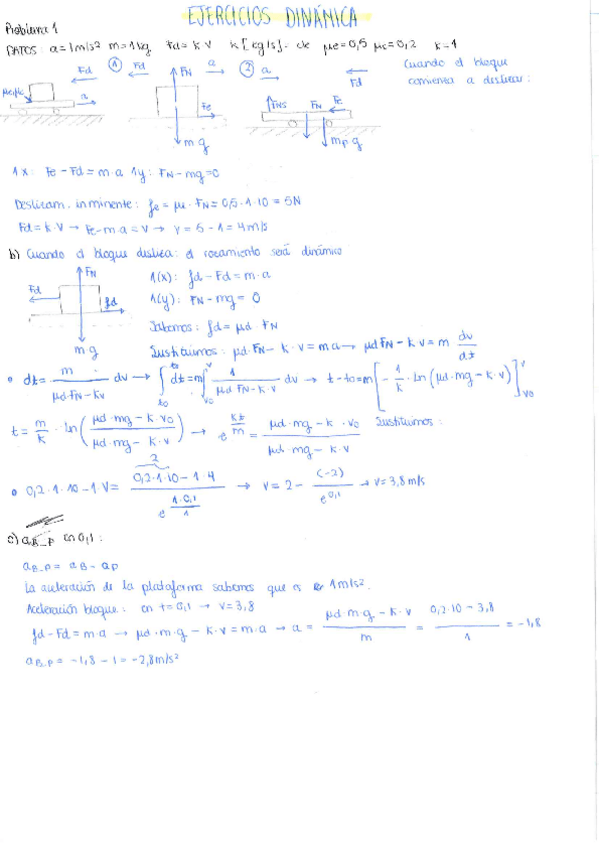 EJERCICIOS DINÁMICA
Problema 1
DATOS: a=1m/s² m=1kg Fd=k·V k[kg/s]. de μe=0,5 μc=0,2 k=1
Cuando el bloque
comienza a deslizar:
Fd ① Fd FN a ② a Fd
μe/μc a Fe FNS FN Fe
m·g mp·g
1x: Fe-Fd=m·a 1y: FN-mg=0
Deslizam. inminente: fe=μe·FN=0,5·1·10=5N
Fd=k·V → Fe-m·a=V → V=5-1=4m/s
b) Cuando el bloque desliza: el rozamiento será dinámico
FN Fd fd m·g
1(x): fd-Fd=m·a
1(y): FN-mg=0
Sabemos: fd=μd·FN
Sustituimos: μd·FN-k·V=ma → μdFN-kV=m dv/dt
• dt= m/(μd·FN-kv) dv → ∫t0 to dt=m∫v0 v 1/(μdFN-k·V) dv → t-t0=m[-1/k·Ln(μd·mg-k·V)]v v0
t=m/k·Ln((μd·mg-k·V0)/(μd·mg-k·V)) → e^(kt/m)=(μd·mg-k·V0)/(μd·mg-k·V) Sustituimos:
• 0,2·1·10-1·V= (0,2·1·10-1·4)/e^(1·0,1/1) → V=2-(-2)/e^0,1 → V=3,8m/s
2
c) aB_P en 0,1:
aB_P=aB-aP
La aceleración de la plataforma sabemos que es 1m/s².
Aceleración bloque: en t=0,1 → V=3,8
fd-Fd=m·a → μd·m·g-k·V=m·a → a=(μd·m·g-k·V)/m=(0,2·10-3,8)/1=-1,8
aB_P=-1,8-1=-2,8m/s²